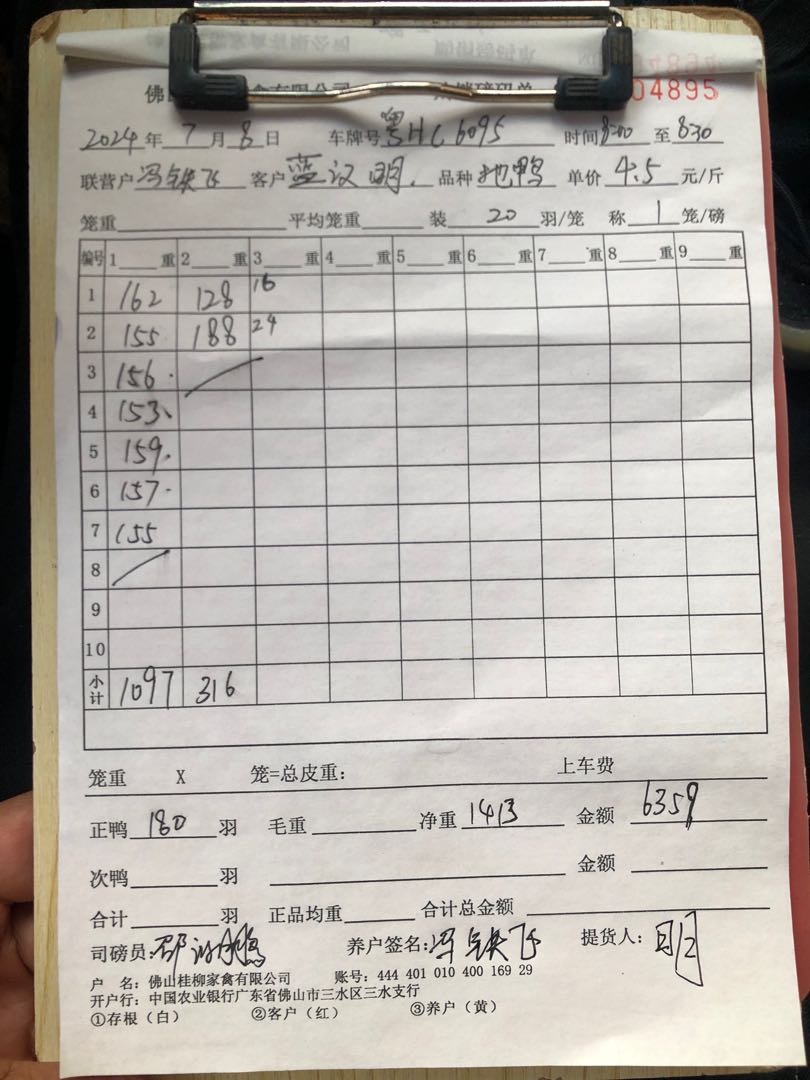 04895
2024年7月8日 车牌号粤HC6095 时间8:00至8:30
联营户冯铁飞 客户蓝汉明. 品种地鸭 单价4.5元/斤
笼重 平均笼重 装20羽/笼 称1笼/磅
编号 1重 2重 3重 4重 5重 6重 7重 8重 9重
1 162 128 16
2 155 188 24
3 156
4 153
5 159
6 157
7 155
8
9
10
小计 1097 316
笼重 X 笼=总皮重: 上车费
正鸭180羽 毛重 净重1413 金额6359
次鸭 羽 金额
合计 羽 正品均重 合计总金额
司磅员: 养户签名:冯铁飞 提货人:明
户 名: 佛山桂柳家禽有限公司 账号: 444 401 010 400 169 29
开户行: 中国农业银行广东省佛山市三水区三水支行
①存根(白) ②客户(红) ③养户(黄)